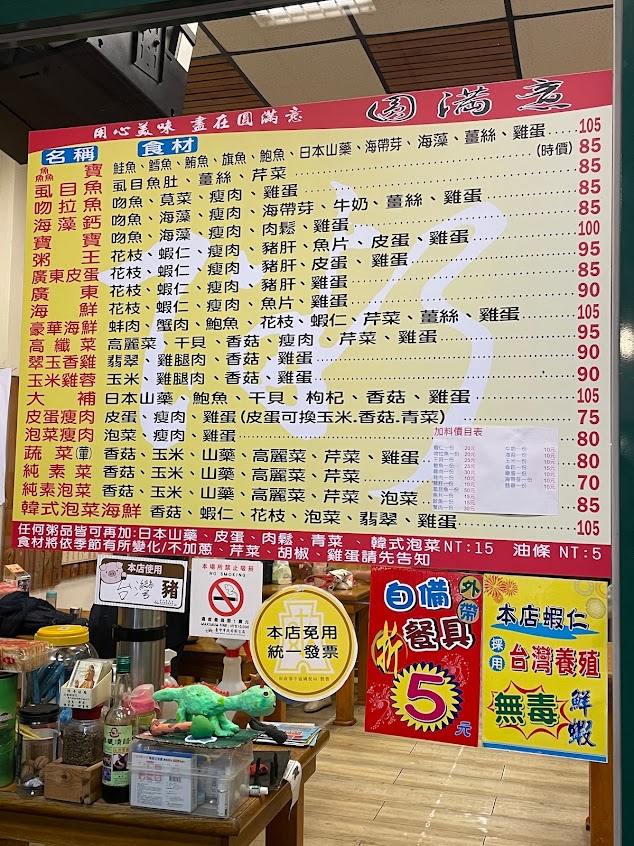 用心美味 盡在圓滿意 圓滿意
名稱 食材
鱻寶 鮭魚、鱈魚、鮪魚、旗魚、鮑魚、日本山藥、海帶芽、海藻、薑絲、雞蛋……105
(時價)
虱目魚 虱目魚肚、薑絲、芹菜……85
吻拉魚 吻魚、莧菜、瘦肉、雞蛋……85
海藻鈣 吻魚、海藻、瘦肉、海帶芽、牛奶、薑絲、雞蛋……85
寶寶 吻魚、海藻、瘦肉、肉鬆、雞蛋……85
粥王 花枝、蝦仁、瘦肉、豬肝、魚片、皮蛋、雞蛋……100
廣東皮蛋 花枝、蝦仁、瘦肉、豬肝、皮蛋、雞蛋……95
廣東 花枝、蝦仁、瘦肉、豬肝、雞蛋……85
海鮮 花枝、蝦仁、瘦肉、魚片、雞蛋……90
豪華海鮮 蚌肉、蟹肉、鮑魚、花枝、蝦仁、芹菜、薑絲、雞蛋……105
高纖菜 高麗菜、干貝、香菇、瘦肉、芹菜、雞蛋……95
翠玉香雞 翡翠、雞腿肉、香菇、雞蛋……90
玉米雞蓉 玉米、雞腿肉、香菇、雞蛋……90
大補 日本山藥、鮑魚、干貝、枸杞、香菇、雞蛋……105
皮蛋瘦肉 皮蛋、瘦肉、雞蛋(皮蛋可換玉米.香菇.青菜)……75
泡菜瘦肉 泡菜、瘦肉、雞蛋……80
蔬菜(葷) 香菇、玉米、山藥、高麗菜、芹菜、雞蛋……80
純素菜 香菇、玉米、山藥、高麗菜、芹菜……70
純素泡菜 香菇、玉米、山藥、高麗菜、芹菜、泡菜……85
韓式泡菜海鮮 香菇、蝦仁、花枝、泡菜、翡翠、雞蛋……105
加料價目表
任何粥品皆可再加:日本山藥、皮蛋、肉鬆、青菜、韓式泡菜NT:15 油條 NT:5
食材將依季節有所變化/不加蔥、芹菜、胡椒、雞蛋請先告知
本店使用
台灣豬
本場所禁止吸菸
NO SMOKING
本店免用
統一發票
自備
外帶
餐具
折5元
本店蝦仁
採用
台灣養殖
無毒
鮮蝦